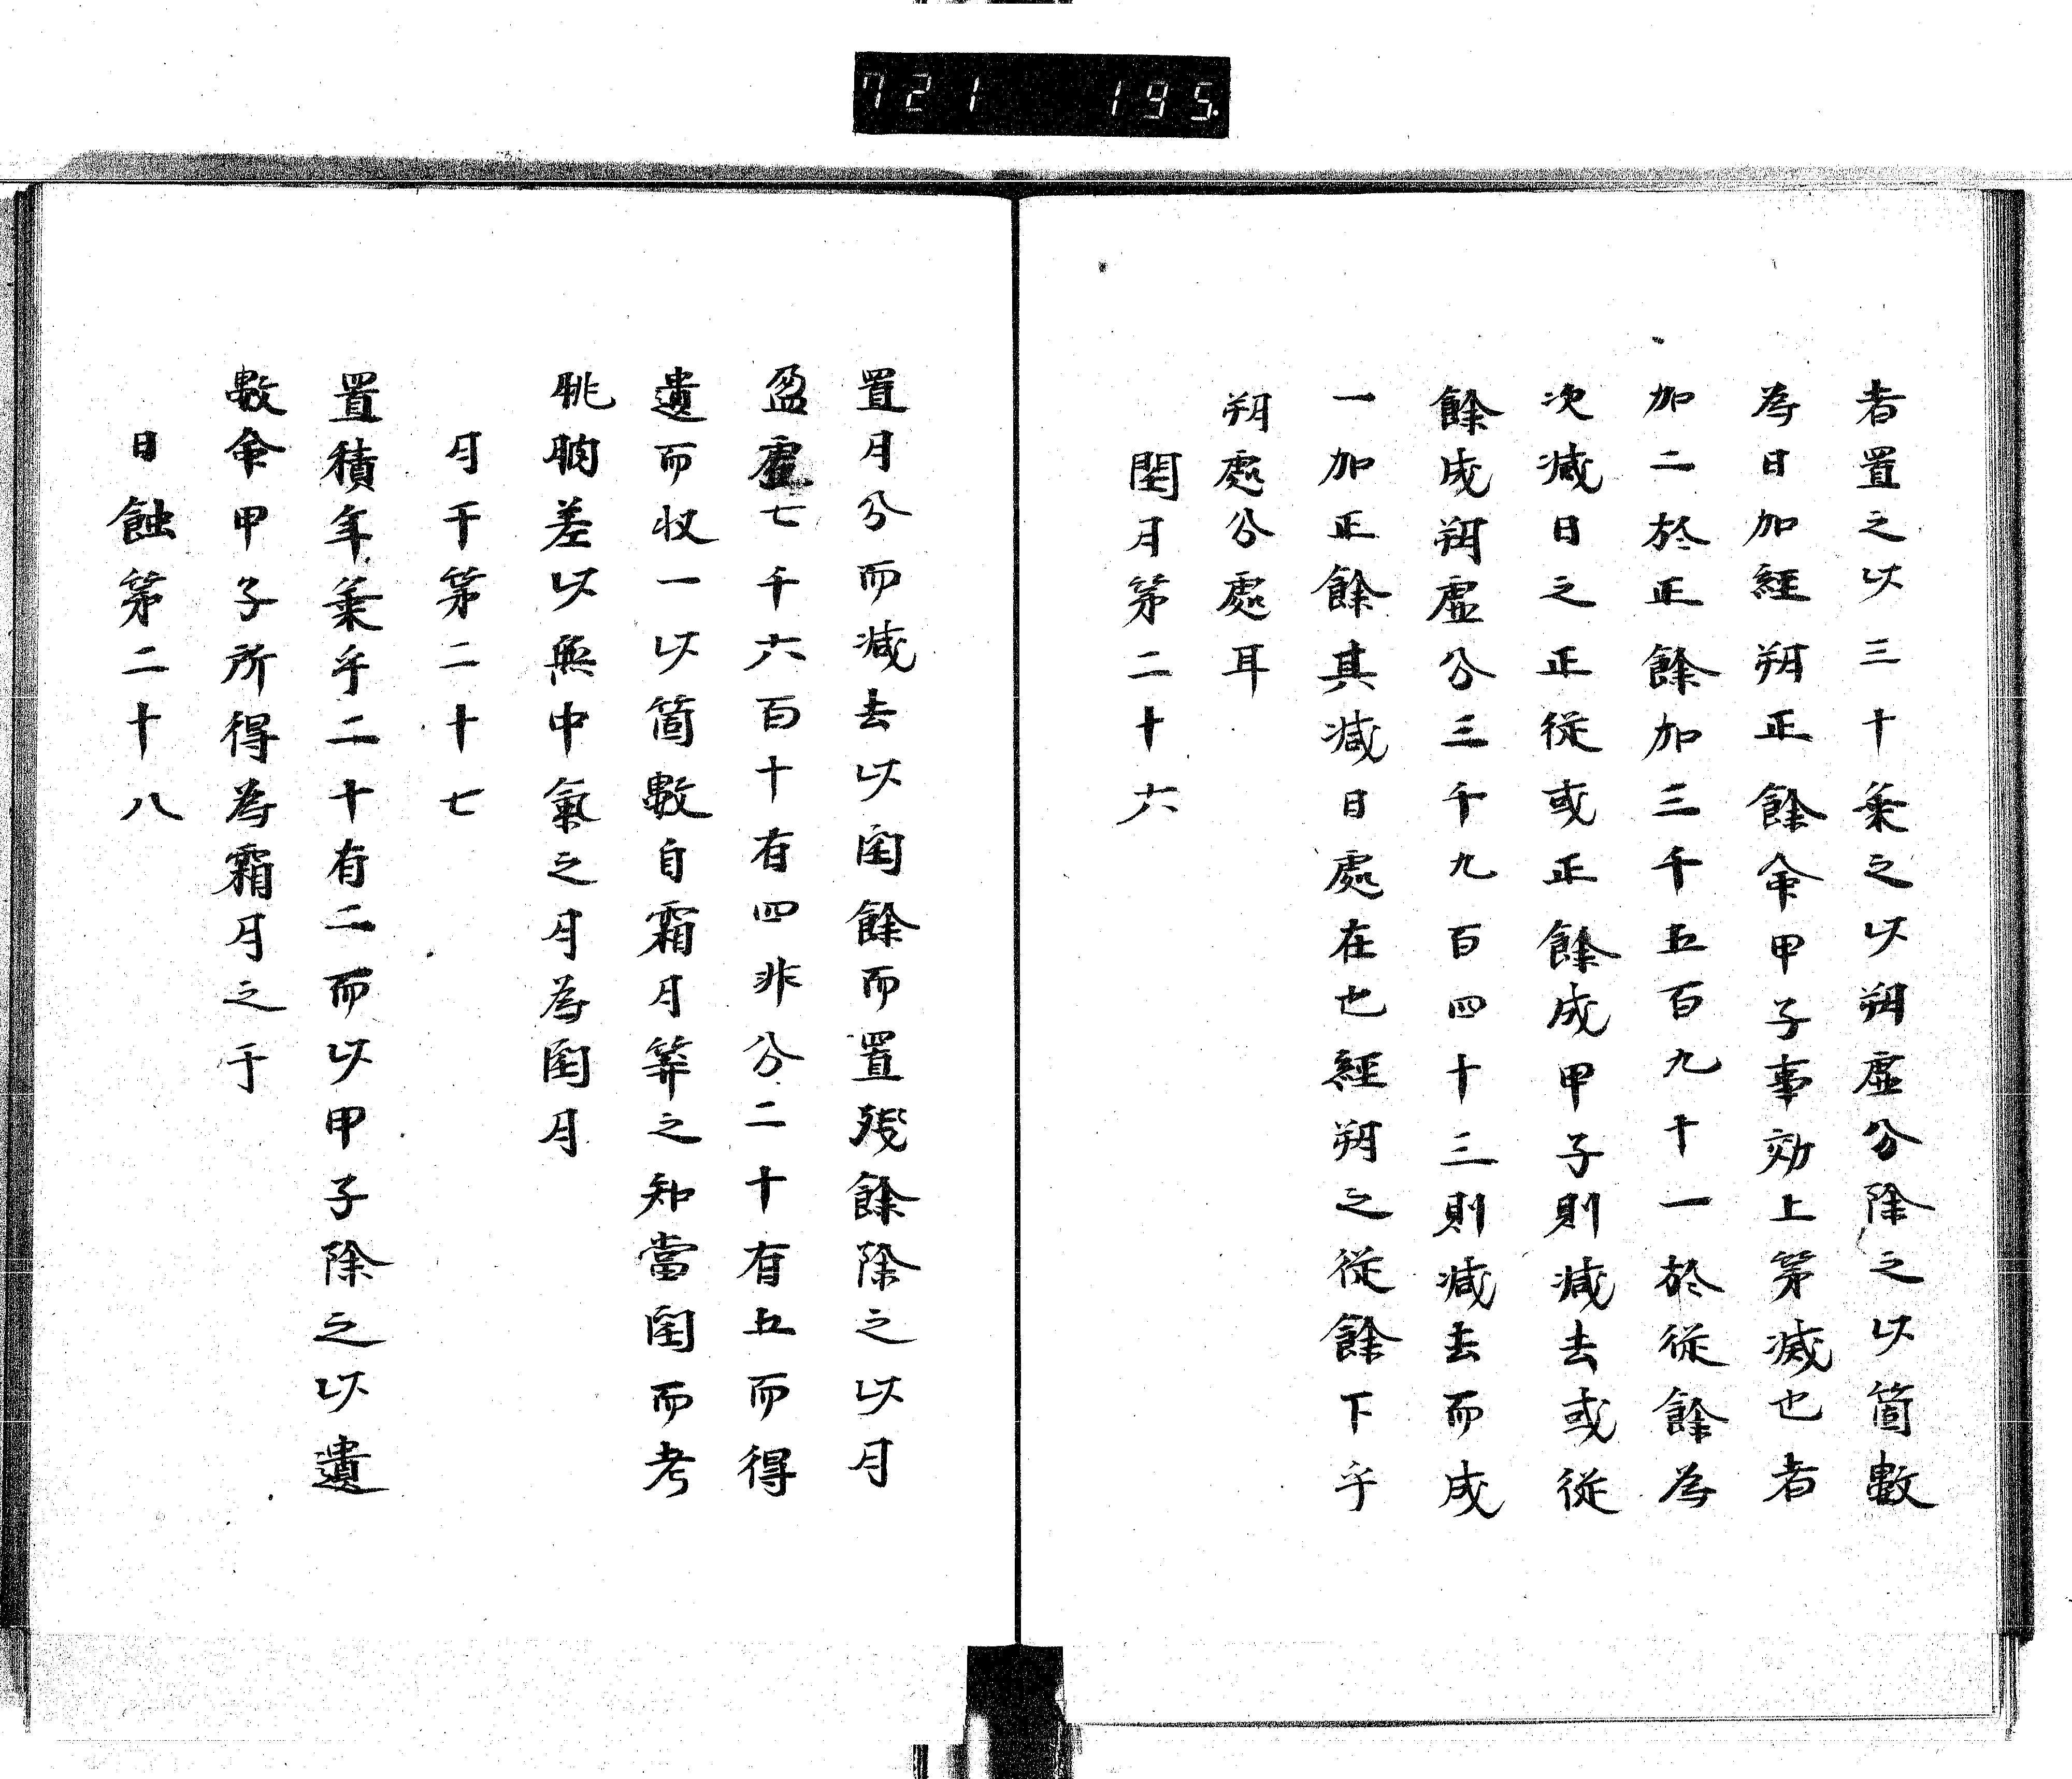 721 195
者置之以三十乗之以朔虚分除之以箇數
為日加經朔正餘命甲子事効上第减也者
加二於正餘加三千五百九十一於從餘為
次减日之正從或正餘成甲子則减去或從
餘成朔虚分三千九百四十三則减去而成
一加正餘其减日處在也經朔之從餘下乎
朔處分處耳
閏月第二十六
置月分而减去以閏餘而置殘餘除之以月
盈虚七千六百十有四非分二十有五而得
遺而収一以箇數自霜月筭之知當閏而考
朓朒差以無中氣之月為閏月
月干第二十七
置積年乗乎二十有二而以甲子除之以遺
數命甲子所得為霜月之于
日蝕第二十八